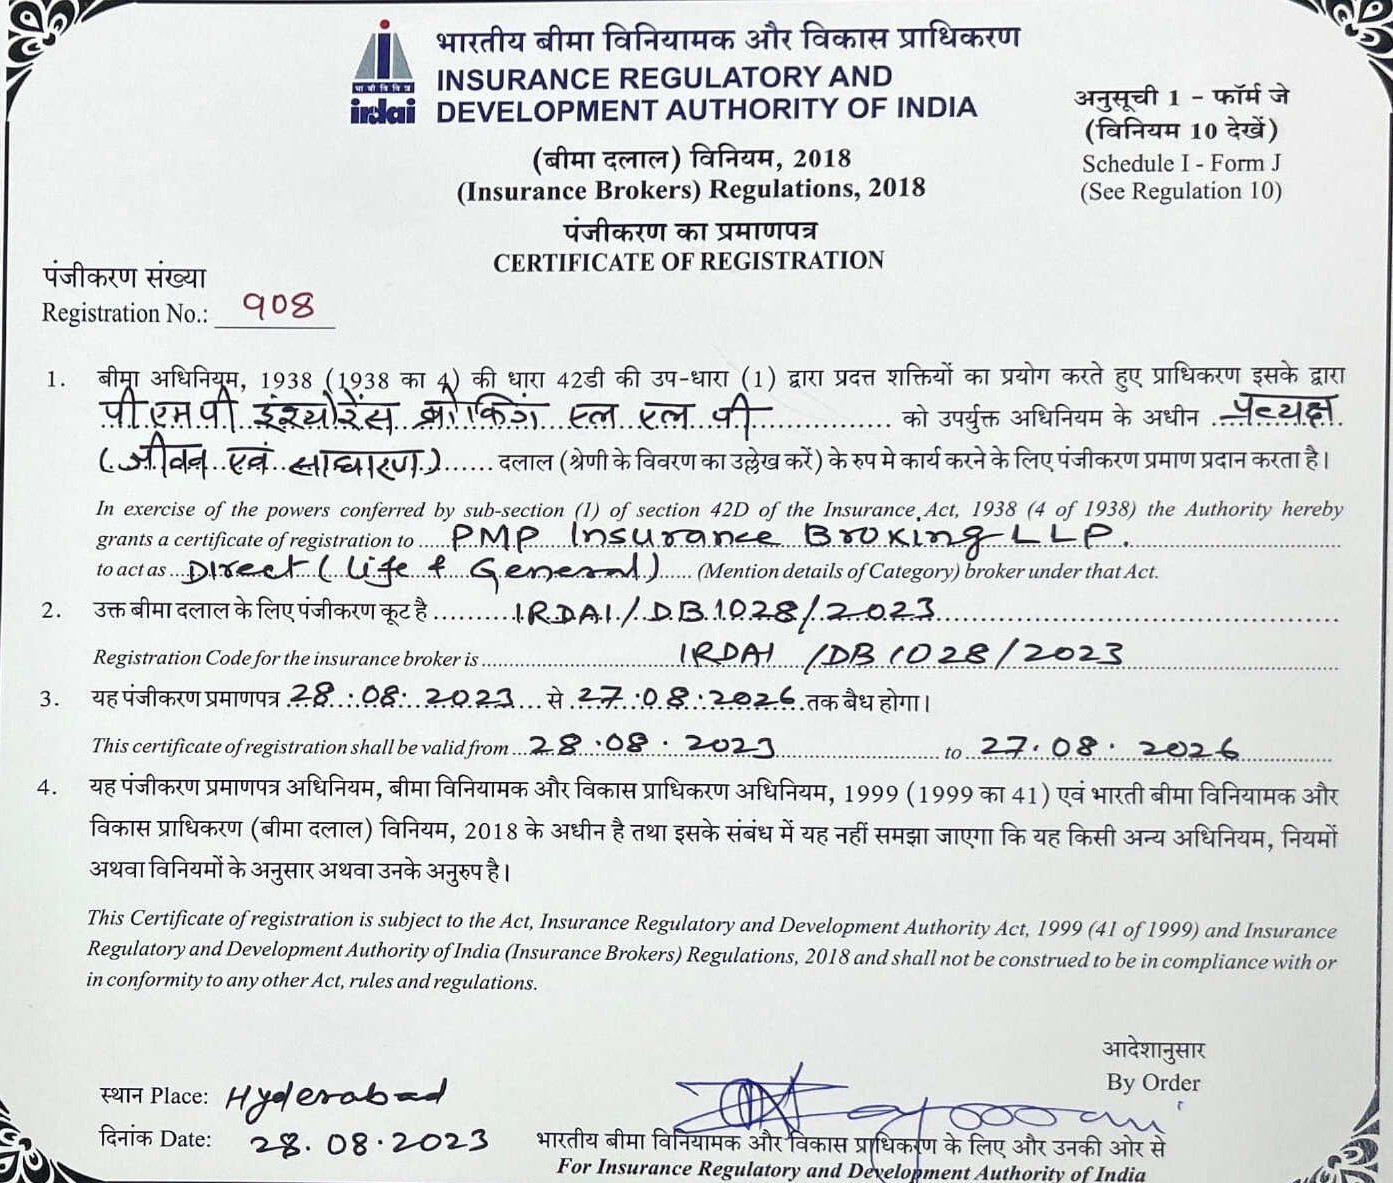 भारतीय बीमा विनियामक और विकास प्राधिकरण
INSURANCE REGULATORY AND
DEVELOPMENT AUTHORITY OF INDIA
भा बी वि वि प्रा
irdai
अनुसूची 1 - फॉर्म जे
(विनियम 10 देखें)
Schedule I - Form J
(See Regulation 10)
(बीमा दलाल) विनियम, 2018
(Insurance Brokers) Regulations, 2018
पंजीकरण का प्रमाणपत्र
CERTIFICATE OF REGISTRATION
पंजीकरण संख्या
Registration No.: 908
1. बीमा अधिनियम, 1938 (1938 का 4) की धारा 42डी की उप-धारा (1) द्वारा प्रदत्त शक्तियों का प्रयोग करते हुए प्राधिकरण इसके द्वारा
पीएमपी इंश्योरेंस ब्रोकिंग एल एल पी को उपर्युक्त अधिनियम के अधीन प्रत्यक्ष
(जीवन एवं साधारण) दलाल (श्रेणी के विवरण का उल्लेख करें) के रुप मे कार्य करने के लिए पंजीकरण प्रमाण प्रदान करता है।
In exercise of the powers conferred by sub-section (1) of section 42D of the Insurance Act, 1938 (4 of 1938) the Authority hereby
grants a certificate of registration to PMP Insurance Broking LLP.
to act as Direct (Life & General) (Mention details of Category) broker under that Act.
2. उक्त बीमा दलाल के लिए पंजीकरण कूट है IRDAI/DB1028/2023
Registration Code for the insurance broker is IRDAI /DB1028/2023
3. यह पंजीकरण प्रमाणपत्र 28.08.2023 से 27.08.2026 तक बैध होगा।
This certificate of registration shall be valid from 28.08.2023 to 27.08.2026
4. यह पंजीकरण प्रमाणपत्र अधिनियम, बीमा विनियामक और विकास प्राधिकरण अधिनियम, 1999 (1999 का 41) एवं भारती बीमा विनियामक और
विकास प्राधिकरण (बीमा दलाल) विनियम, 2018 के अधीन है तथा इसके संबंध में यह नहीं समझा जाएगा कि यह किसी अन्य अधिनियम, नियमों
अथवा विनियमों के अनुसार अथवा उनके अनुरुप है।
This Certificate of registration is subject to the Act, Insurance Regulatory and Development Authority Act, 1999 (41 of 1999) and Insurance
Regulatory and Development Authority of India (Insurance Brokers) Regulations, 2018 and shall not be construed to be in compliance with or
in conformity to any other Act, rules and regulations.
आदेशानुसार
By Order
स्थान Place: Hyderabad
दिनांक Date: 28.08.2023
भारतीय बीमा विनियामक और विकास प्राधिकरण के लिए और उनकी ओर से
For Insurance Regulatory and Development Authority of India